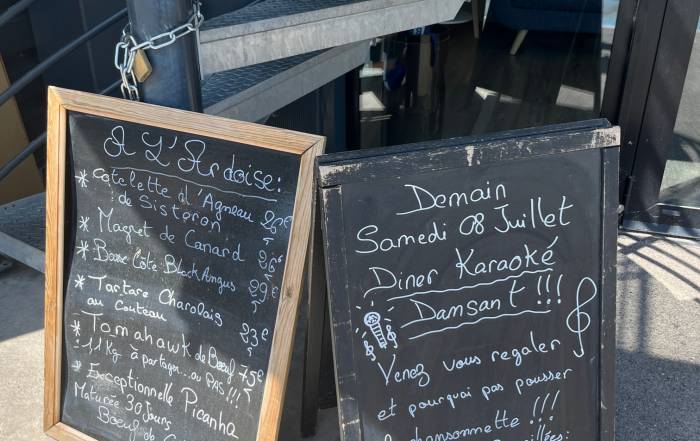 A L'Ardoise:
* Cotelette d'Agneau
de Sisteron 26€
* Magret de Canard 26€
* Basse Côte Black Angus 29€
* Tartare Charolais
au Couteau 23€
* Tomahawk de Bœuf 75€
1.1Kg à partager... ou PAS!!!
* Exceptionnelle Picanha
Maturée 30 Jours
Bœuf de
Demain
Samedi 08 Juillet
Diner Karaoké
Dansant !!!
Venez vous regaler
et pourquoi pas pousser
chansonnette !!!